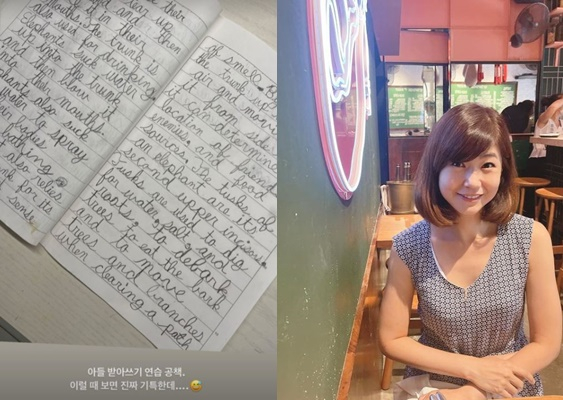 their
up and then
mouths. in their
also used for drinking.
Elephants suck water
up into the trunk
and then blow it
into their mouths.
also suck
water to spray
bodies
bathing
also relies
trunk for its
sense
of smell.
the trunk up
air and moving
it from side
it can determine
location of friend
enemies, food
sources. tusks of
an elephant are its
second upper
Tusks are used to dig
for water, salt, and
roots; to debark
trees to eat the bark
and to move
trees and branches
when clearing a path
아들 받아쓰기 연습 공책.
이럴 때 보면 진짜 기특한데....😅